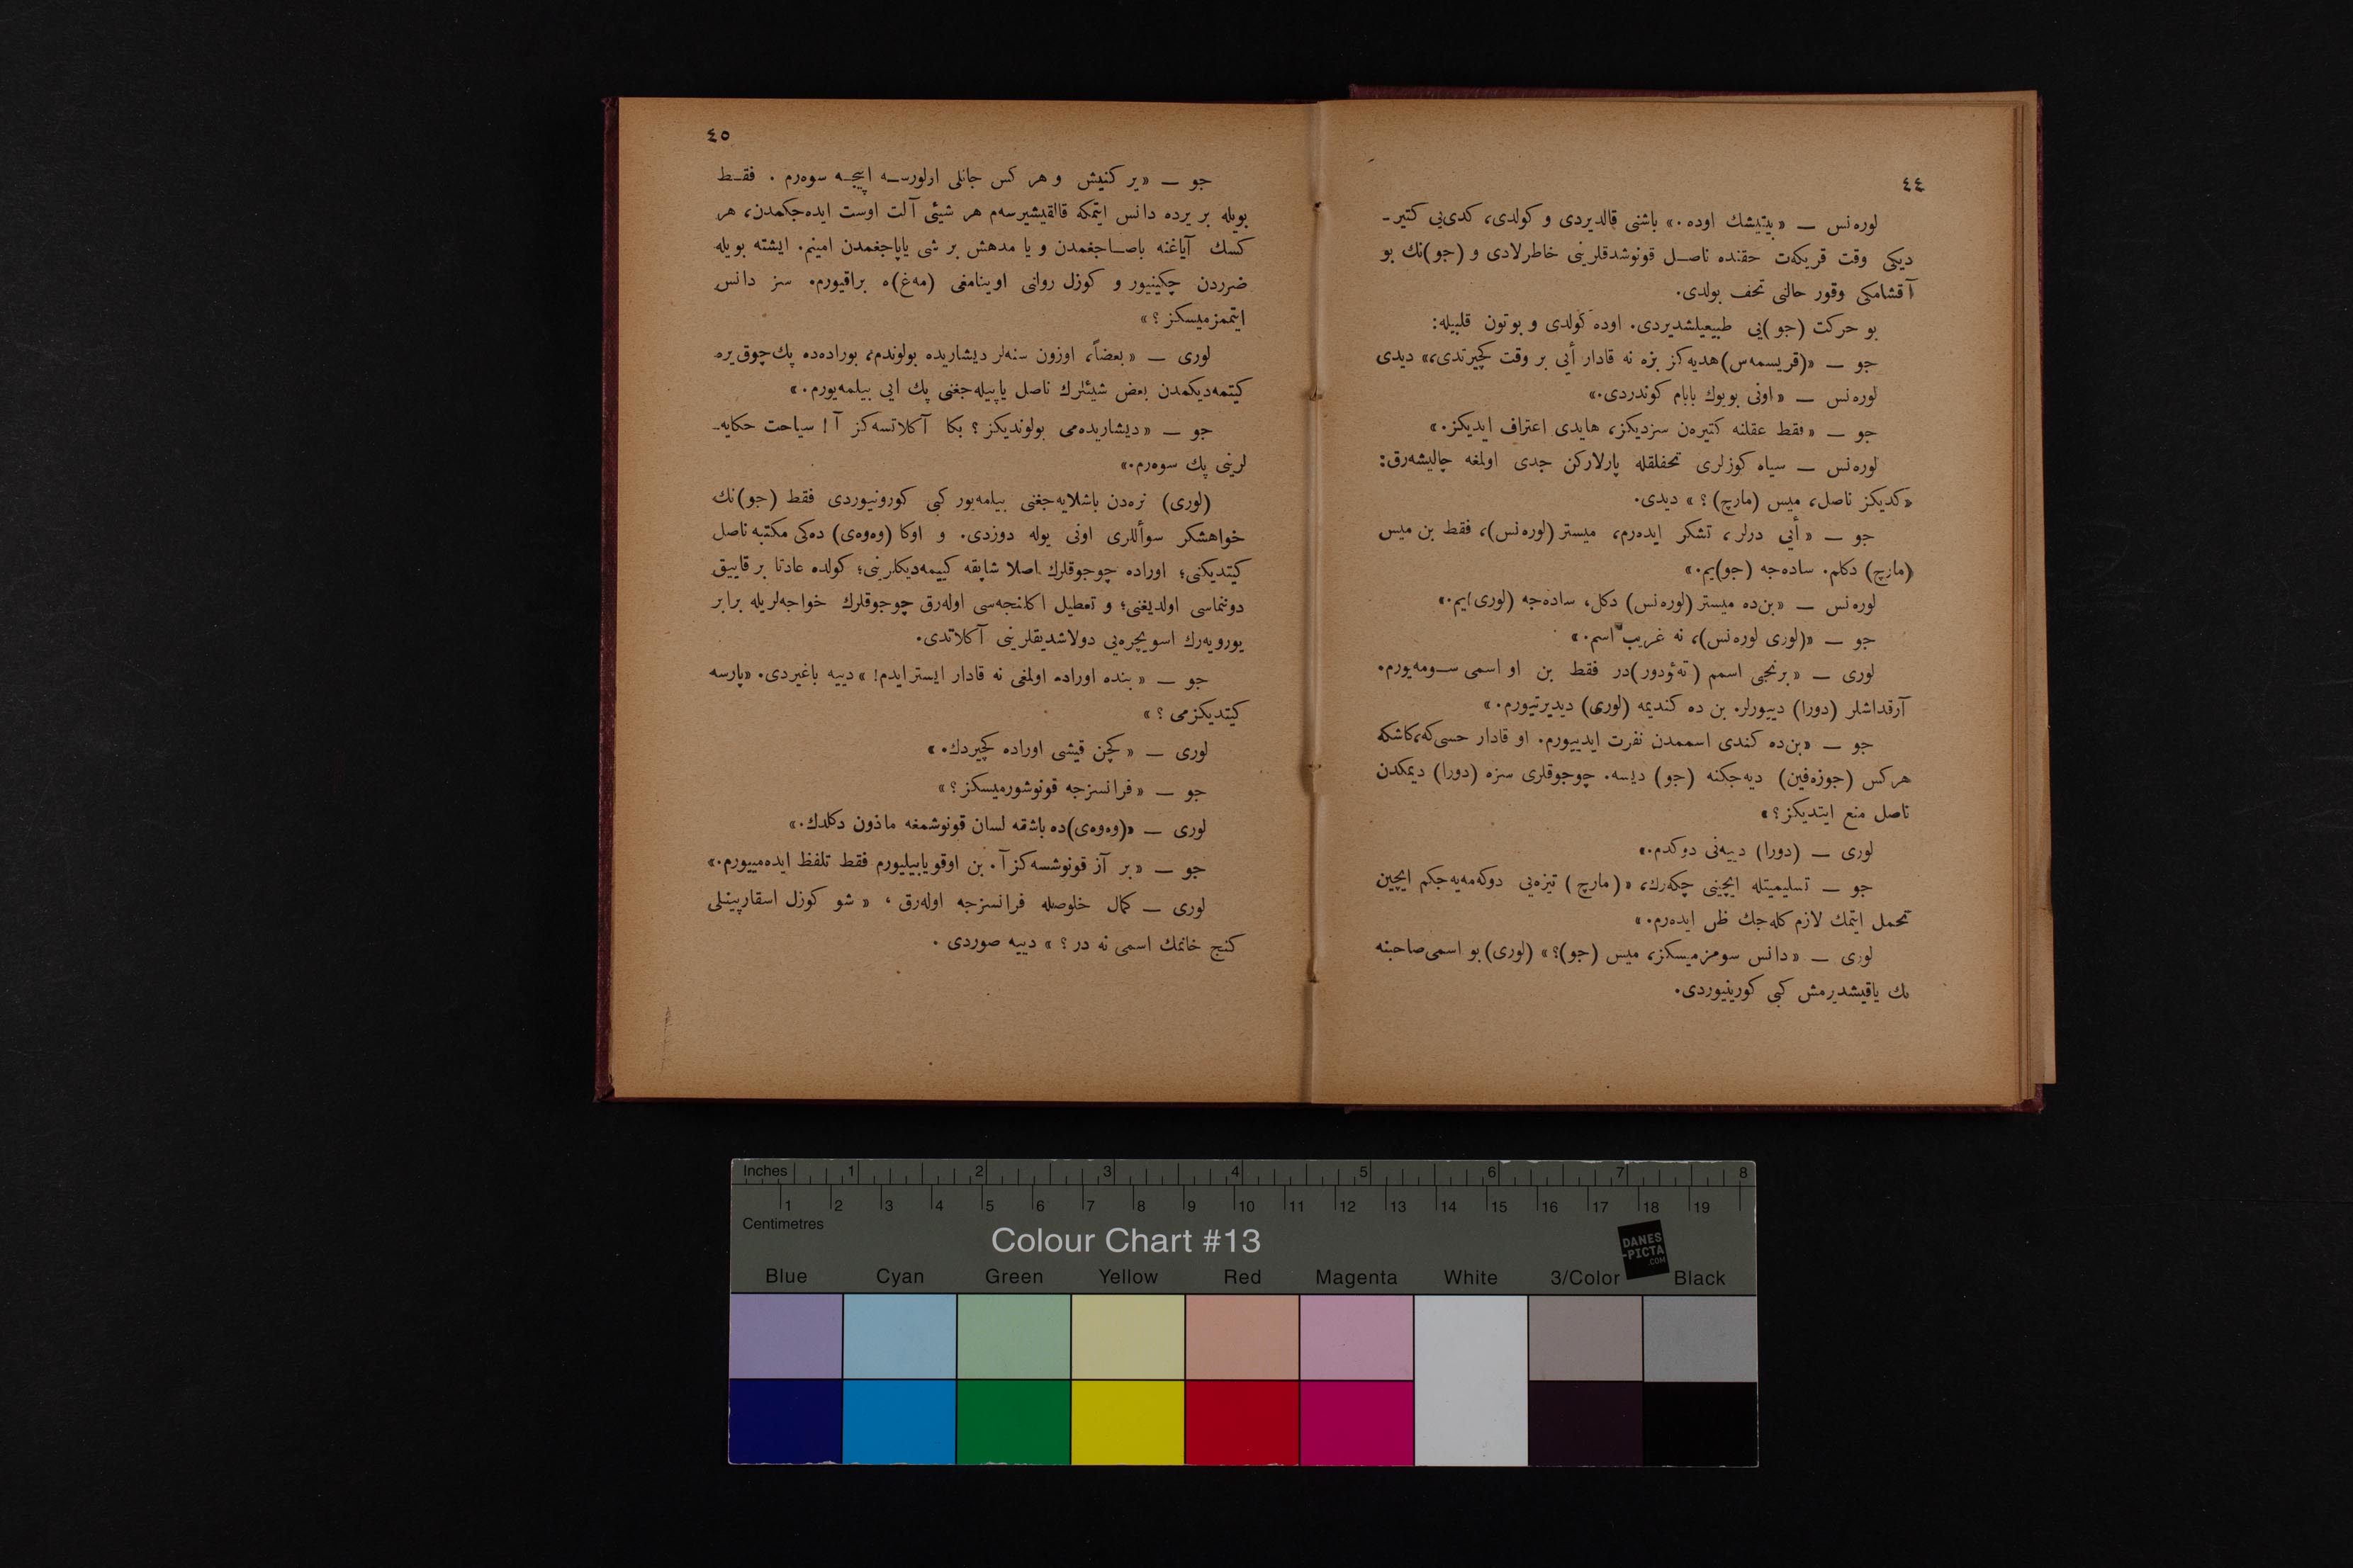 ٤٤
لوره‌نس — «بيتيشك اوده.» باشنى قالديردى و كولدى، كدى‌يى كتير-
ديكى وقت قريكه‌ت حقنده ناصل قونوشدقلرينى خاطرلادى و (جو)نك بو
آقشامكى وقور حالنى تحف بولدى.
بو حركت (جو)يى طبيعيلشديردى. اوده كولدى و بوتون قلبيله:
جو — «(قريسمه‌س) هديه‌كز بزه نه قادار أيى بر وقت كچيرتدى،» ديدى
لوره‌نس — «اونى بويوك بابام كوندردى.»
جو — «فقط عقلنه كتيره‌ن سزديكز، هايدى اعتراف ايديكز.»
لوره‌نس — سياه كوزلرى تحفلقله پارلاركن جدى اولمغه چاليشه‌رق:
«كديكز ناصل، ميس (مارچ)؟» ديدى.
جو — «أيى درلر، تشكر ايده‌رم، ميستر (لوره‌نس)، فقط بن ميس
(مارچ) دكلم. ساده‌جه (جو)يم.»
لوره‌نس — «بن‌ده ميستر (لوره‌نس) دكل، ساده‌جه (لورى)يم.»
جو — «(لورى لوره‌نس)، نه غريب اسم.»
لورى — «برنجى اسمم (ته‌ئودور)در فقط بن او اسمى سومه‌يورم.
آرقداشلر (دورا) دييورلر. بن ده كنديمه (لورى) ديديرتيورم.»
جو — «بن‌ده كندى اسممدن نفرت ايدييورم. او قادار حسى‌كه، كاشكه
هركس (جوزه‌فين) ديه‌جكنه (جو) ديسه. چوجوقلرى سزه (دورا) ديمكدن
ناصل منع ايتديكز؟»
لورى — (دورا) دييه‌نى دوكدم.»
جو — تسليميتله ايچينى چكه‌رك، «(مارچ) تيزه‌يى دوكه‌مه‌يه‌جكم ايچين
تحمل ايتمك لازم كله‌جك ظن ايده‌رم.»
لورى — «دانس سومزميسكز، ميس (جو)؟» (لورى) بو اسمى صاحبنه
پك ياقيشديرمش كبى كورينيوردى.
٤٥
جو — «ير كنيش و هر كس جانلى اولورسه اييجه سوه‌رم. فقط
بويله بر يرده دانس ايتمكه قالقيشيرسه‌م هر شيئى آلت اوست ايده‌جكمدن، هر
كسك آياغنه باصاجغمدن و يا مدهش بر شى ياپاجغمدن امينم. ايشته بويله
ضرردن چكينيور و كوزل روانى اوينامغى (مه‌غ)ه براقيورم. سز دانس
ايتمزميسكز؟»
لورى — «بعضاً، اوزون سنه‌لر ديشاريده بولوندم، بوراده‌ده پك چوق يره
كيتمه‌ديكمدن بعض شيئلرك ناصل ياپيله‌جغنى پك ايى بيلمه‌يورم.»
جو — «ديشاريده‌مى بولونديكز؟ بكا آكلاتسه‌كز آ! سياحت حكايه-
لرينى پك سوه‌رم.»
(لورى) نره‌دن باشلايه‌جغنى بيلمه‌يور كبى كورونيوردى فقط (جو)نك
خواهشكر سوأللرى اونى يوله دوزدى. و اوكا (وه‌وه‌ى) ده‌كى مكتبه ناصل
كيتديكنى؛ اوراده چوجوقلرك اصلا شاپقه كييمه‌ديكلرينى؛ كولده عادتا بر قاييق
دونتماسى اولديغنى؛ و تعطيل اكلنجه‌سى اوله‌رق چوجوقلرك خواجه‌لريله برابر
يورويه‌رك اسويچره‌يى دولاشديقلرينى آكلاتدى.
جو — «بنده اوراده اولمغى نه قادار ايستر ايدم!» دييه باغيردى. «پارسه
كيتديكزمى؟»
لورى — «كچن قيشى اوراده كچيردك.»
جو — «فرانسزجه قونوشورميسكز؟»
لورى — «(وه‌وه‌ى)ده باشقه لسان قونوشمغه ماذون دكلدك.»
جو — «بر آز قونوشسه‌كز آ. بن اوقويابيليورم فقط تلفظ ايده‌مييورم.»
لورى — كمال خلوصله فرانسزجه اوله‌رق، «شو كوزل اسقارپينلى
كنج خانمك اسمى نه در؟» دييه صوردى.
Inches 1 2 3 4 5 6 7 8
1 2 3 4 5 6 7 8 9 10 11 12 13 14 15 16 17 18 19
Centimetres
Colour Chart #13
DANES
-PICTA
.COM
Blue Cyan Green Yellow Red Magenta White 3/Color Black